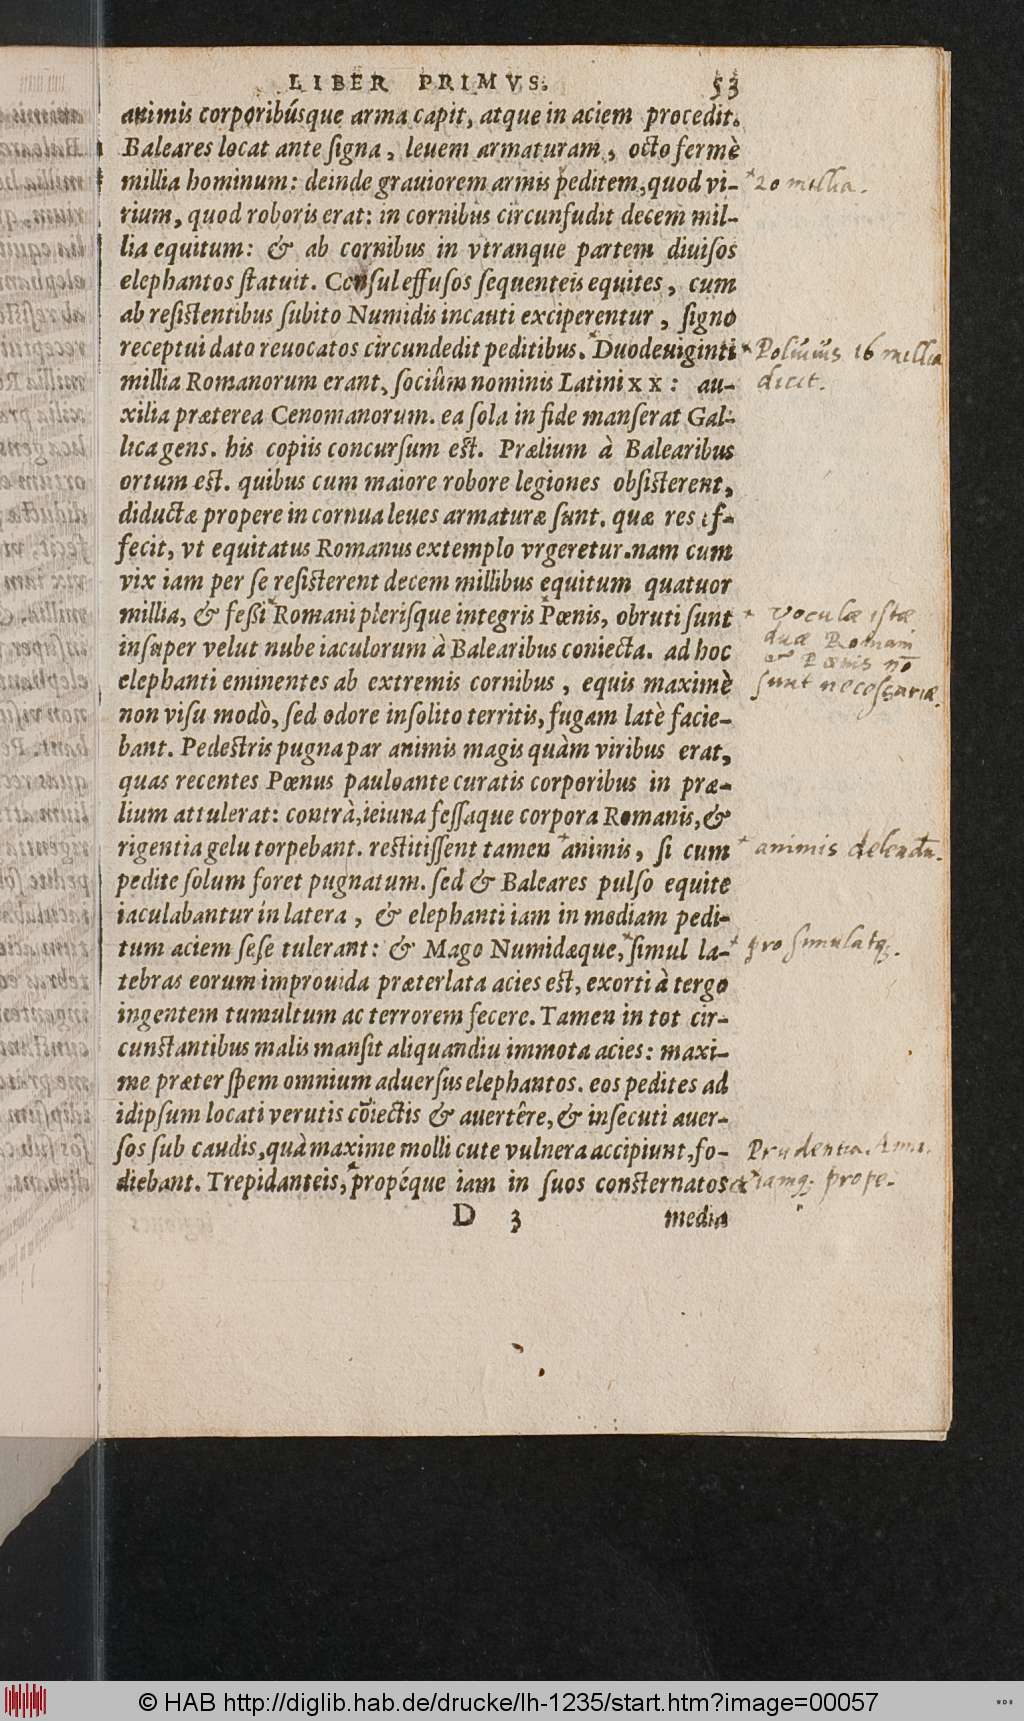 LIBER PRIMVS. 53
animis corporibúsque arma capit, atque in aciem procedit.
Baleares locat ante ſigna, leuem armaturam, octo fermè
millia hominum: deinde grauiorem armis peditem, quod vi-
* 20 millia.
rium, quod roboris erat: in cornibus circunfudit decem mil-
lia equitum: & ab cornibus in vtranque partem diuiſos
elephantos ſtatuit. Conſul effuſos ſequenteis equites, cum
ab reſiſtentibus ſubito Numidis incauti exciperentur, ſigno
receptui dato reuocatos circundedit peditibus. *Duodeuiginti
* Poliuius 16 millia
millia Romanorum erant, ſociûm nominis Latini xx: au-
dicit.
xilia præterea Cenomanorum. ea ſola in fide manſerat Gal-
lica gens. his copiis concurſum eſt. Prælium à Balearibus
ortum eſt. quibus cum maiore robore legiones obſiſterent,
diductæ propere in cornua leues armaturæ ſunt. quæ res ef-
fecit, vt equitatus Romanus extemplo vrgeretur. nam cum
vix iam per ſe reſiſterent decem millibus equitum quatuor
millia, & feßi *Romani pleriſque integris *Pœnis, obruti ſunt
* voculæ istæ
inſuper velut nube iaculorum à Balearibus coniecta. ad hoc
duæ Romani
et Pœnis nō
elephanti eminentes ab extremis cornibus, equis maximè
sunt necessariæ.
non viſu modò, ſed odore inſolito territis, fugam latè facie-
bant. Pedeſtris pugna par animis magis quàm viribus erat,
quas recentes Pœnus pauloante curatis corporibus in præ-
lium attulerat: contrà, ieiuna feſſaque corpora Romanis, &
rigentia gelu torpebant. reſtitiſſent tamen *animis, ſi cum
* animis delendū.
pedite ſolum foret pugnatum. ſed & Baleares pulſo equite
iaculabantur in latera, & elephanti iam in mediam pedi-
tum aciem ſeſe tulerant: & Mago Numidæque, *ſimul la-
* pro simulatq.
tebras eorum improuida præterlata acies eſt, exorti à tergo
ingentem tumultum ac terrorem fecere. Tamen in tot cir-
cunſtantibus malis manſit aliquandiu immota acies: maxi-
me præter ſpem omnium aduerſus elephantos. eos pedites ad
idipſum locati verutis cōiectis & auertêre, & inſecuti auer-
ſos ſub caudis, quà maxime molli cute vulnera accipiunt, fo-
Prudentia
diebant. Trepidanteis, *propéque iam in ſuos conſternatos
* iamq. prope.
D 3 media
© HAB http://diglib.hab.de/drucke/lh-1235/start.htm?image=00057